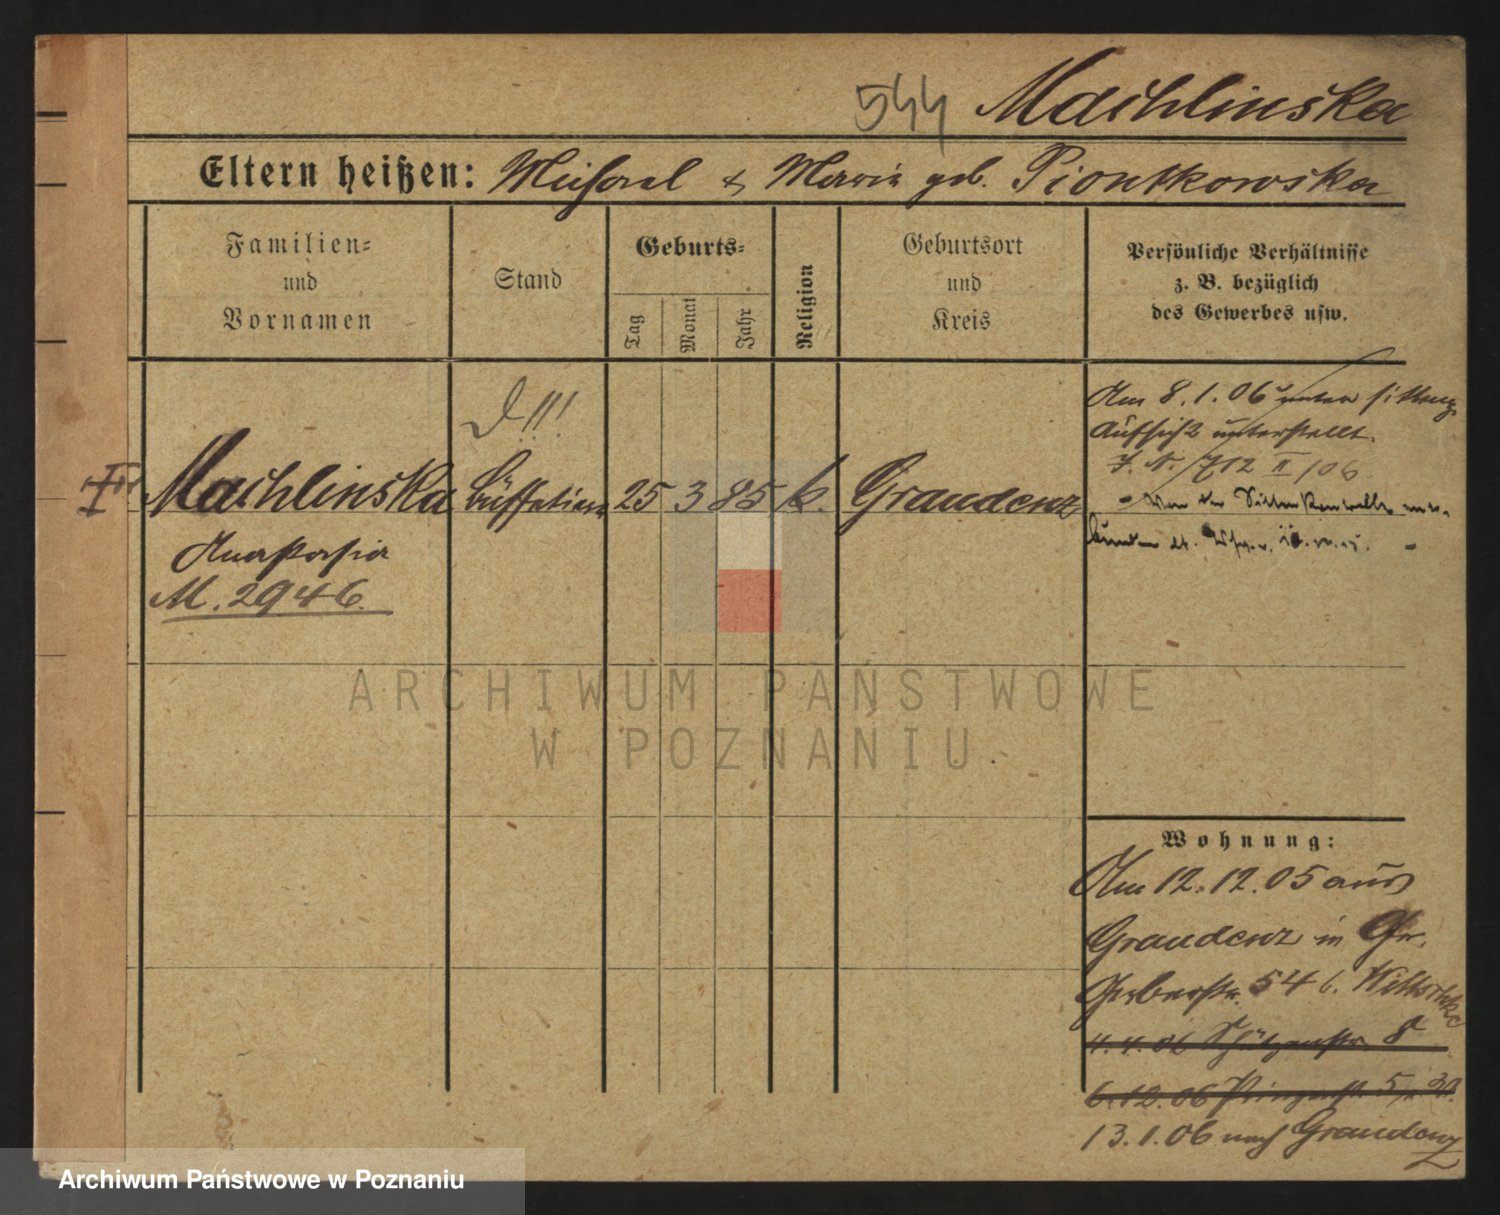 544 Machlinska
Eltern heißen: Michael & Maria geb. Piontkowska
Familien=
und
Vornamen
Stand
Geburts=
Tag
Monat
Jahr
Religion
Geburtsort
und
Kreis
Persönliche Verhältnisse
z. B. bezüglich
des Gewerbes usw.
Am 8.1.06 unter sitten
Aufsicht unterstellt.
J. N. 712 II/06
Machlinska
Anastasia
M. 2946.
Büffetiere
25 3 85 k. Graudenz
Wohnung:
Am 12.12.05 aus
Graudenz in Gr.
Gerberstr. 54 b.
4.4.06 Schützenstr. 8
6.12.06
13.1.06 nach Graudenz
ARCHIWUM PAŃSTWOWE
W POZNANIU
Archiwum Państwowe w Poznaniu